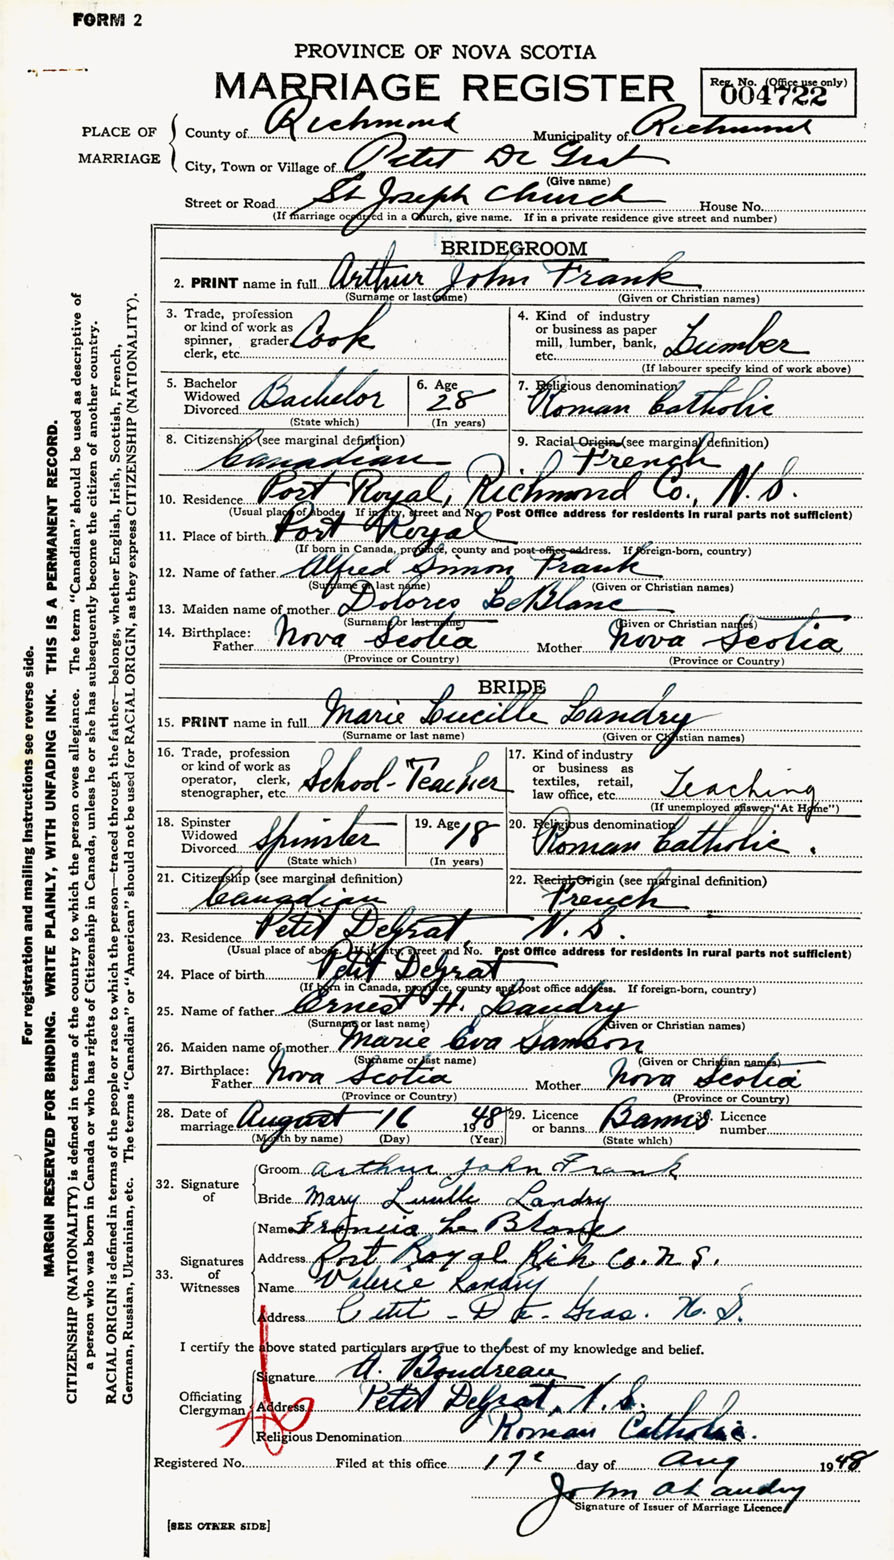 FORM 2
PROVINCE OF NOVA SCOTIA
MARRIAGE REGISTER
Reg. No. (Office use only)
004722
PLACE OF MARRIAGE
County of Richmond Municipality of Richmond
City, Town or Village of Petit De Grat
(Give name)
Street or Road St Joseph Church House No.
(If marriage occured in a Church, give name. If in a private residence give street and number)
BRIDEGROOM
2. PRINT name in full Arthur John Frank
(Surname or last name) (Given or Christian names)
3. Trade, profession or kind of work as spinner, grader, clerk, etc. Cook
4. Kind of industry or business as paper mill, lumber, bank, etc. Lumber
(If labourer specify kind of work above)
5. Bachelor Widowed Divorced Bachelor
(State which)
6. Age 28
(In years)
7. Religious denomination
Roman Catholic
8. Citizenship (see marginal definition)
Canadian
9. Racial Origin (see marginal definition)
French
10. Residence Port Royal, Richmond Co., N.S.
(Usual place of abode. If in city, street and No. Post Office address for residents in rural parts not sufficient)
11. Place of birth Port Royal
(If born in Canada, province, county and post office address. If foreign-born, country)
12. Name of father Alfred Simon Frank
(Surname or last name) (Given or Christian names)
13. Maiden name of mother Dolores LeBlanc
(Surname or last name) (Given or Christian names)
14. Birthplace: Father Nova Scotia Mother Nova Scotia
(Province or Country) (Province or Country)
BRIDE
15. PRINT name in full Marie Lucille Landry
(Surname or last name) (Given or Christian names)
16. Trade, profession or kind of work as operator, clerk, stenographer, etc. School-Teacher
17. Kind of industry or business as textiles, retail, law office, etc. Teaching
(If unemployed answer "At Home")
18. Spinster Widowed Divorced Spinster
(State which)
19. Age 18
(In years)
20. Religious denomination
Roman Catholic.
21. Citizenship (see marginal definition)
Canadian
22. Racial Origin (see marginal definition)
French
23. Residence Petit Degrat N.S.
(Usual place of abode. If in city, street and No. Post Office address for residents in rural parts not sufficient)
24. Place of birth Petit Degrat
(If born in Canada, province, county and post office address. If foreign-born, country)
25. Name of father Ernest H. Landry
(Surname or last name) (Given or Christian names)
26. Maiden name of mother Marie Eva Samson
(Surname or last name) (Given or Christian names)
27. Birthplace: Father Nova Scotia Mother Nova Scotia
(Province or Country) (Province or Country)
28. Date of marriage August 16 1948
(Month by name) (Day) (Year)
29. Licence or banns Banns
(State which)
30. Licence number
32. Signature of
Groom Arthur John Frank
Bride Mary Lucille Landry
33. Signatures of Witnesses
Name Francis Le Blanc
Address Port Royal Rich Co. N S.
Name Valerie Landry
Address Petit - De - Gras. N. S.
I certify the above stated particulars are true to the best of my knowledge and belief.
Officiating Clergyman
Signature A. Boudreau
Address Petit Degrat, N.S.
Religious Denomination Roman Catholic.
Registered No. Filed at this office 17e day of Aug 1948
John A Landry
Signature of Issuer of Marriage Licence
[SEE OTHER SIDE]
For registration and mailing instructions see reverse side.
MARGIN RESERVED FOR BINDING. WRITE PLAINLY, WITH UNFADING INK. THIS IS A PERMANENT RECORD.
CITIZENSHIP (NATIONALITY) is defined in terms of the country to which the person owes allegiance. The term "Canadian" should be used as descriptive of
a person who was born in Canada or who has rights of Citizenship in Canada, unless he or she has subsequently become the citizen of another country.
RACIAL ORIGIN is defined in terms of the people or race to which the person—traced through the father—belongs, whether English, Irish, Scottish, French,
German, Russian, Ukrainian, etc. The terms "Canadian" or "American" should not be used for RACIAL ORIGIN, as they express CITIZENSHIP (NATIONALITY).